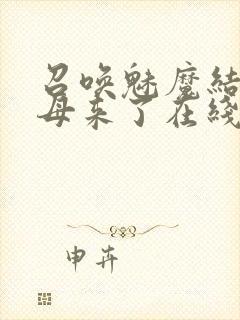 召唤魅魔结
母来了在綫
申卉